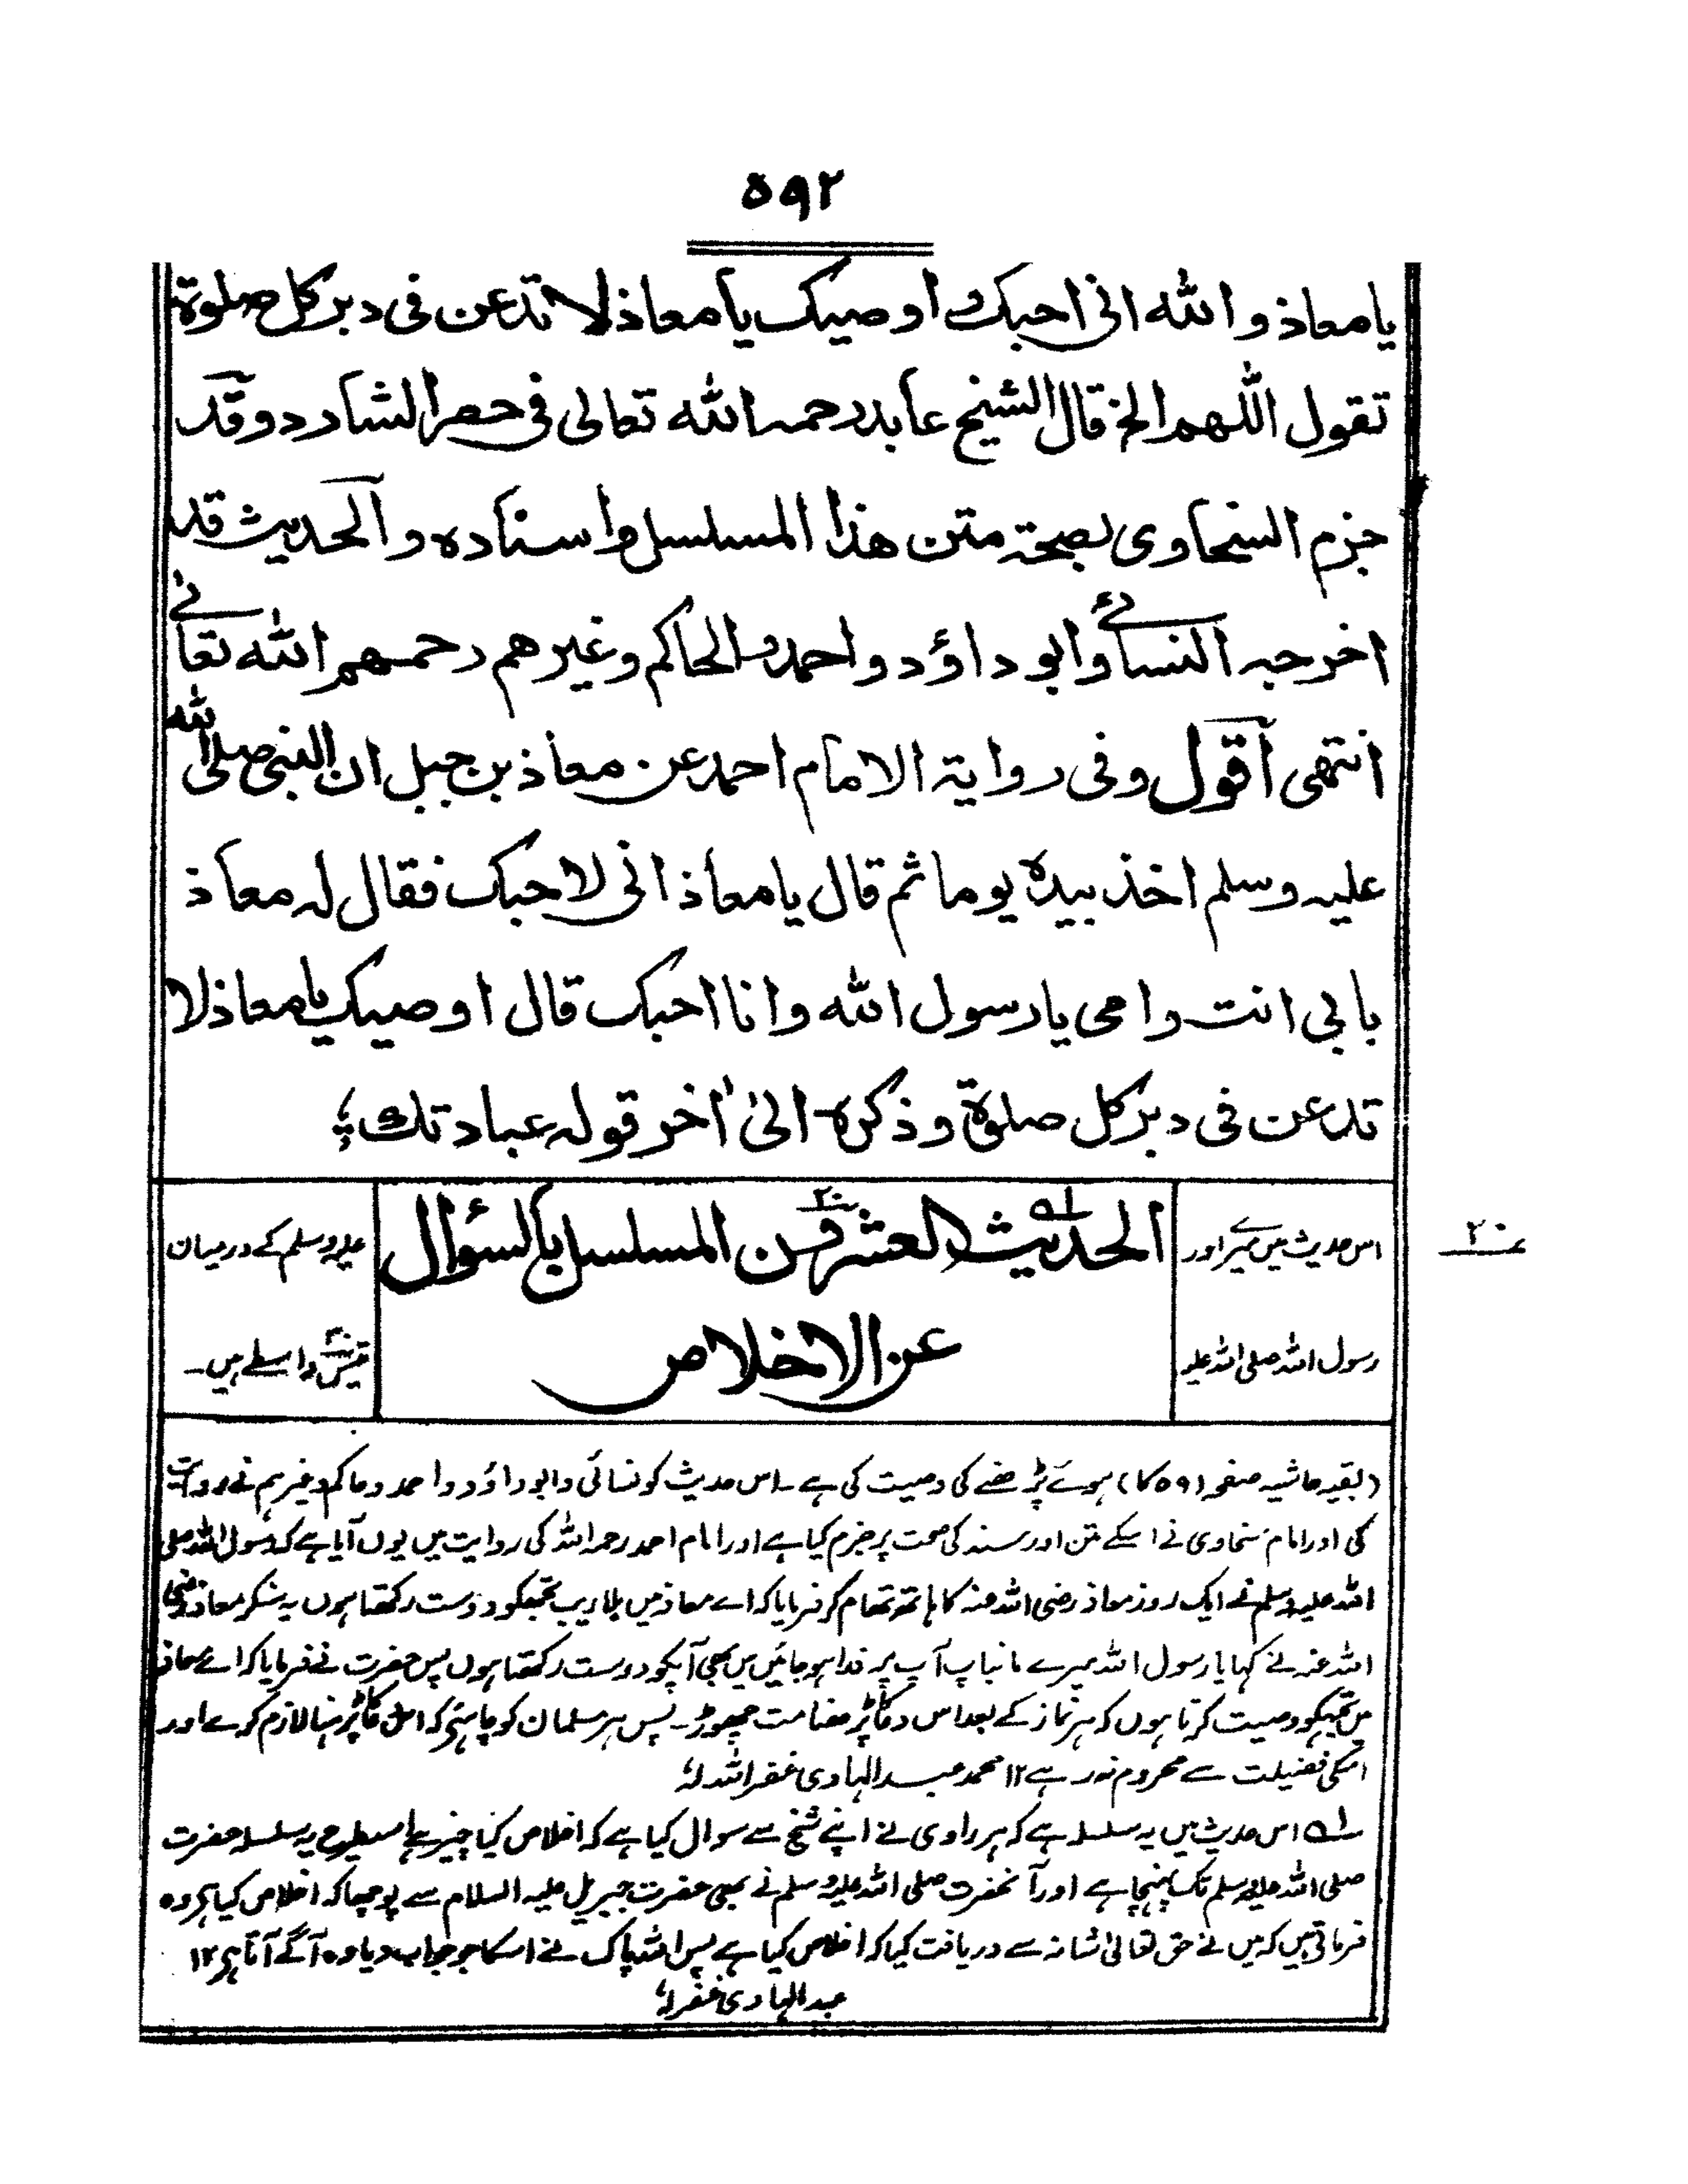 ۵۹۲
يا معاذ والله انى احبك و اوصيك يا معاذ لا تدعن فى دبر كل صلوة
تقول اللهم الخ قال الشيخ عابد رحمہ الله تعالى فى حصر الشارد وقد
جزم السخاوى بصحۃ متن هذا المسلسل واسناده والحديث قد
اخرجہ النسائے وابو داؤد واحمد والحاكم وغيرهم رحمهم الله تعالے
انتهى اقول وفى روايۃ الامام احمد عن معاذ بن جبل ان النبى صلى الله
عليہ وسلم اخذ بيده يوما ثم قال يا معاذ انى لاحبك فقال لہ معاذ
بابى انت وامى يا رسول الله وانا احبك قال اوصيك يا معاذ لا
تدعن فى دبر كل صلوة وذكره الىٰ اٰخر قولہ عبادتك
اس حدیث میں میرے اور
الحدیث ۱ العشرون ۲۰ المسلسل بالسؤال
علیہ وسلم کے درمیان
۲۰
رسول اللہ صلی اللہ علیہ
عن الاخلاص
واسطے ہیں۔
(بقیہ حاشیہ صفحہ ۵۹۱ کا) ہوئے پڑھنے کی وصیت کی ہے۔ اس حدیث کو نسائی وابو داؤد واحمد وحاکم وغیرہم نے روایت
کی اور امام سخاوی نے اسکے متن اور سند کی صحت پر جزم کیا ہے اور امام احمد رحمہ اللہ کی روایت میں یوں آیا ہے کہ رسول اللہ صلی
اللہ علیہ وسلم نے ایک روز معاذ رضی اللہ عنہ کا ہاتھ تھام کر فرمایا کہ اے معاذ میں بلاریب تجھکو دوست رکھتا ہوں یہ سنکر معاذ رضی
اللہ عنہ نے کہا یا رسول اللہ میرے مانباپ آپ پر فدا ہو جائیں میں بھی آپکو دوست رکھتا ہوں پس حضرت نے فرمایا کہ اے معاذ
میں تجھکو وصیت کرتا ہوں کہ ہر نماز کے بعد اس دعا کا پڑھنا مت چھوڑ۔ پس ہر مسلمان کو چاہئے کہ اس دعا کا پڑھنا لازم کرے اور
اسکی فضیلت سے محروم نہ رہے ۱۲ محمد عبد الہادی غفر اللہ لہٗ
۱ اس حدیث میں یہ سلسلہ ہے کہ ہر راوی نے اپنے شیخ سے سوال کیا ہے کہ اخلاص کیا چیز ہے اسیطرح یہ سلسلہ حضرت
صلی اللہ علیہ وسلم تک پہنچا ہے اور آنحضرت صلی اللہ علیہ وسلم نے بھی حضرت جبریل علیہ السلام سے پوچھا کہ اخلاص کیا ہے وہ
فرماتے ہیں کہ میں نے حق تعالیٰ شانہ سے دریافت کیا کہ اخلاص کیا ہے پس اللہ پاک نے اسکا جو جواب دیا وہ آگے آتا ہے ۱۲
عبد الہادی غفرلہٗ